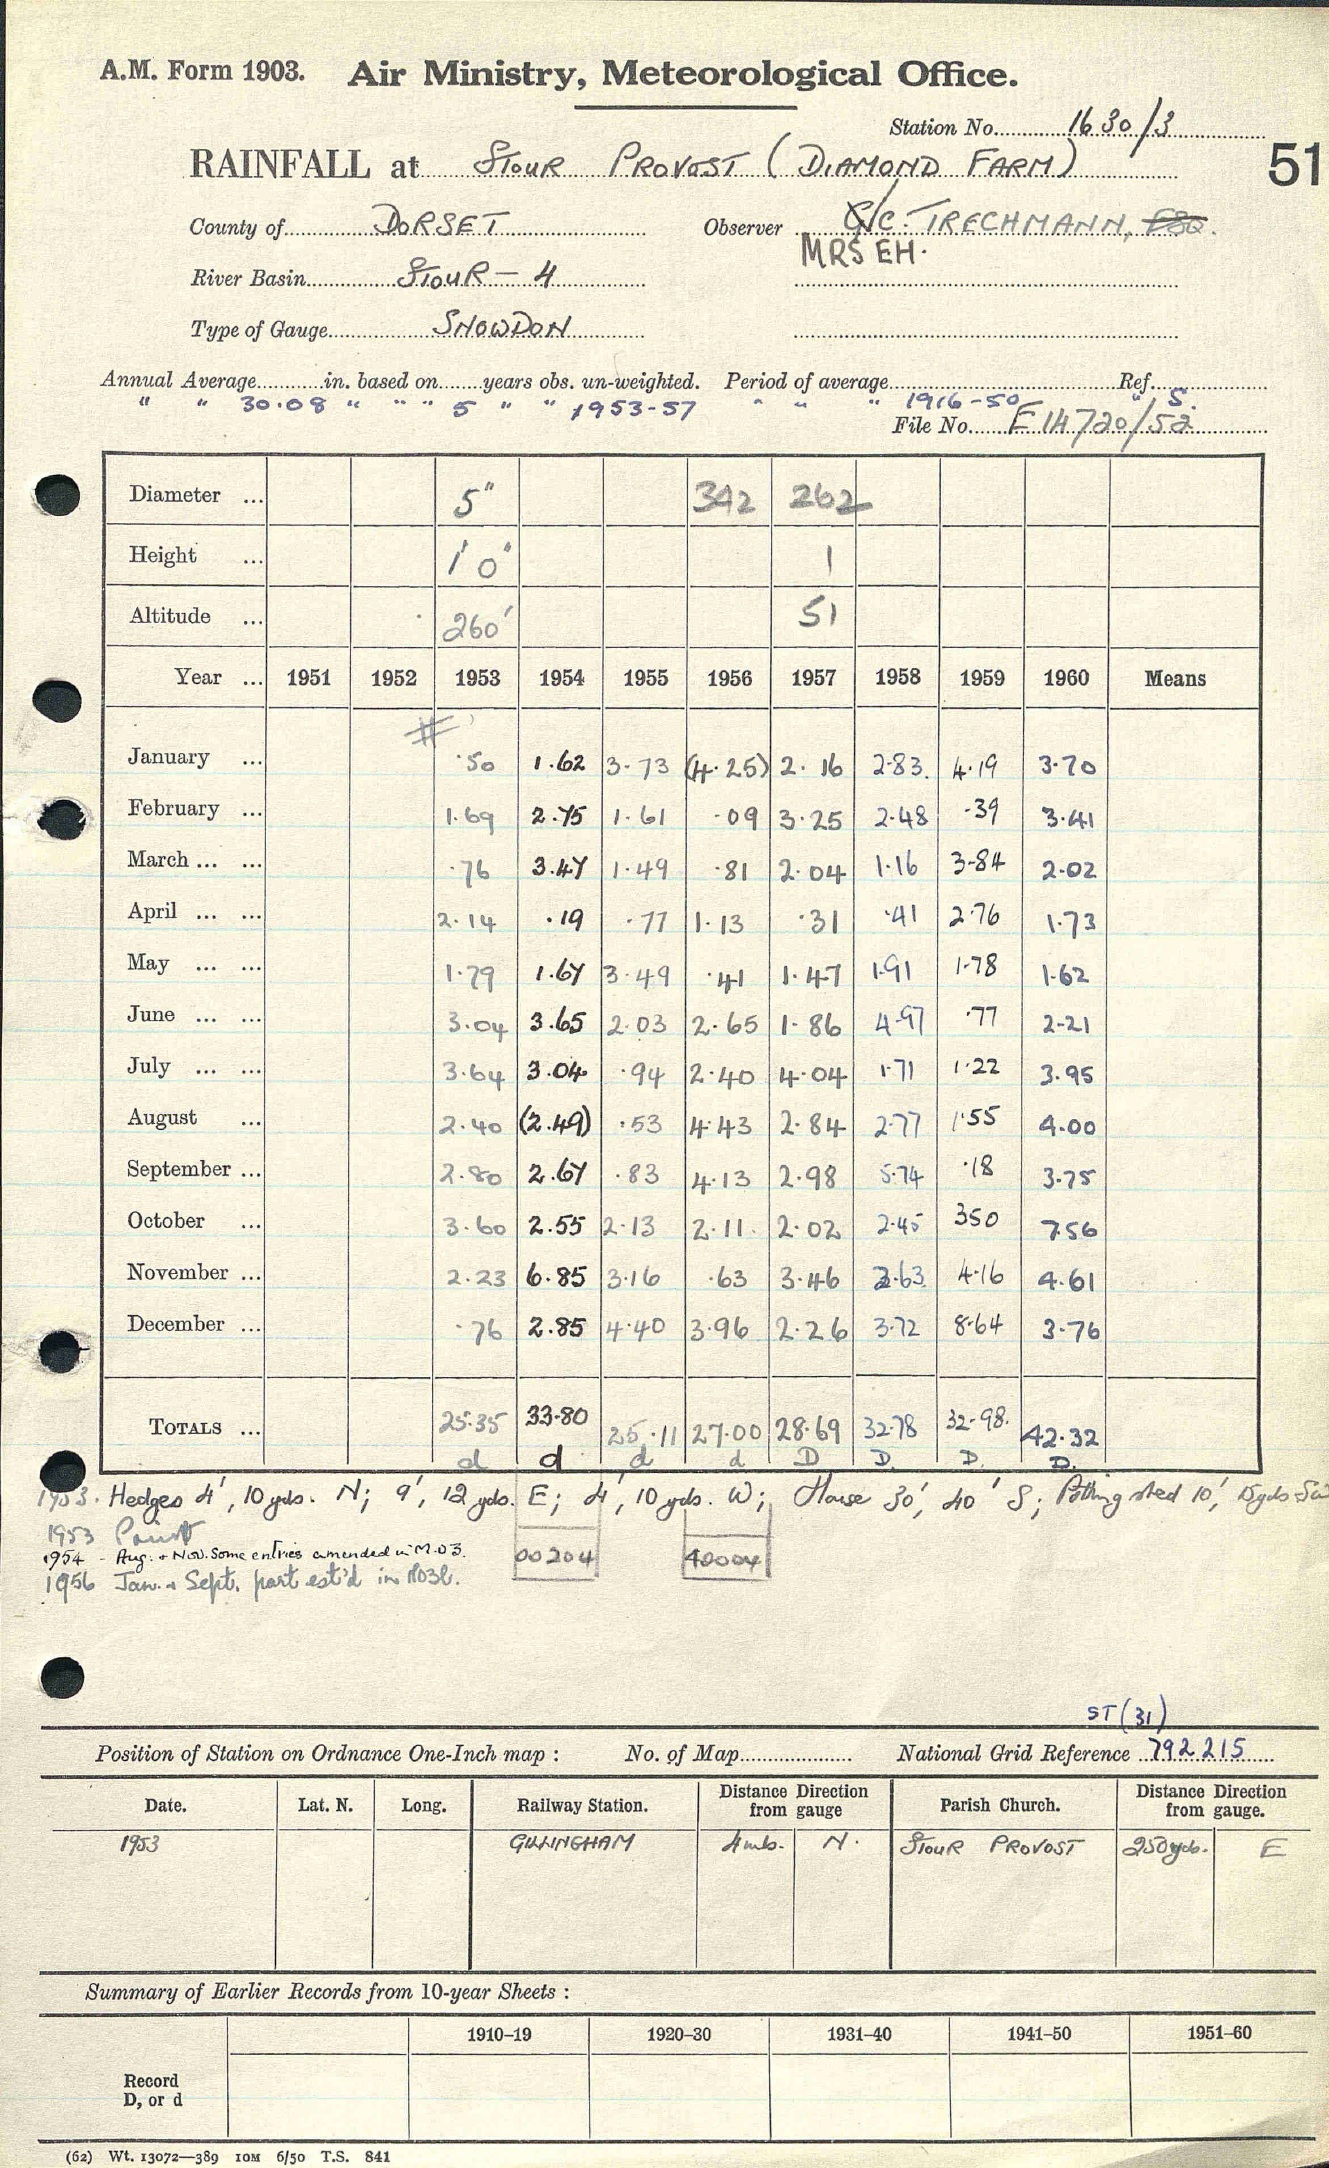 A.M. Form 1903. Air Ministry, Meteorological Office.
Station No. 1630/3
RAINFALL at STOUR PROVOST (DIAMOND FARM) 51
County of DORSET Observer G/C. TRECHMANN, ESQ.
MRS EH.
River Basin STOUR - 4
Type of Gauge SNOWDON
Annual Average in. based on years obs. un-weighted. Period of average Ref.
" " 30.08 " " " 5 " " 1953-57 " " " 1916-50 " S.
File No. E 14720/52
Diameter ... 5" 342 262
Height ... 1' 0" 1
Altitude ... 260' 51
Year ... 1951 1952 1953 1954 1955 1956 1957 1958 1959 1960 Means
#
January ... .50 1.62 3.73 (4.25) 2.16 2.83 4.19 3.70
February ... 1.69 2.75 1.61 .09 3.25 2.48 .39 3.41
March ... ... .76 3.47 1.49 .81 2.04 1.16 3.84 2.02
April ... ... 2.14 .19 .77 1.13 .31 .41 2.76 1.73
May ... ... 1.79 1.67 3.49 .41 1.47 1.91 1.78 1.62
June ... ... 3.04 3.65 2.03 2.65 1.86 4.97 .77 2.21
July ... ... 3.64 3.04 .94 2.40 4.04 1.71 1.22 3.95
August ... 2.40 (2.49) .53 4.43 2.84 2.77 1.55 4.00
September ... 2.80 2.67 .83 4.13 2.98 5.74 .18 3.75
October ... 3.60 2.55 2.13 2.11 2.02 2.45 350 7.56
November ... 2.23 6.85 3.16 .63 3.46 2.63 4.16 4.61
December ... .76 2.85 4.40 3.96 2.26 3.72 8.64 3.76
TOTALS ... 25.35 33.80 25.11 27.00 28.69 32.78 32.98 42.32
d d d d D D. D. D.
1953. Hedges 4', 10 yds. N; 9', 12 yds. E; 4', 10 yds. W; House 30', 40' S; Potting shed 10', 15 yds SW
1953
1954 - Aug. + Nov. some entries amended in M.O3. 00204 40004
1956 Jan. + Sept. part est'd in MO3b.
ST (31)
Position of Station on Ordnance One-Inch map : No. of Map National Grid Reference 792 215
Date. Lat. N. Long. Railway Station. Distance Direction from gauge Parish Church. Distance Direction from gauge.
1953 GILLINGHAM 4 mls. N. STOUR PROVOST 250 yds. E
Summary of Earlier Records from 10-year Sheets :
1910–19 1920–30 1931–40 1941–50 1951–60
Record
D, or d
(62) Wt. 13072—389 10M 6/50 T.S. 841